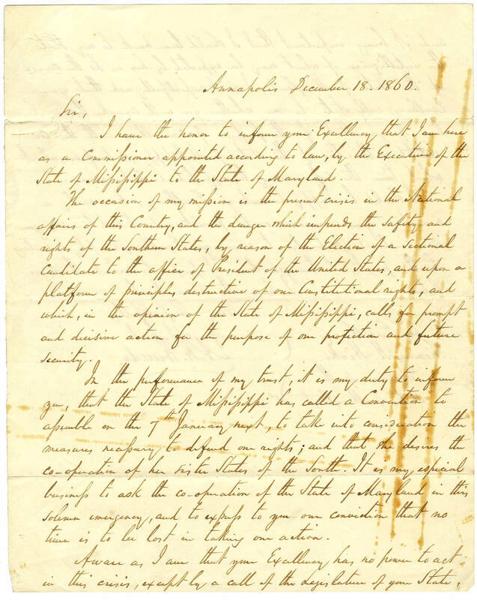 Annapolis December 18. 1860.
Sir,
I have the honor to inform your Excellency, that I am here
as a Commissioner appointed according to law, by the Executive of the
State of Mississippi to the State of Maryland.
The occasion of my mission is the present crisis in the National
affairs of this Country, and the danger which impends the safety and
rights of the Southern States, by reason of the Election of a sectional
Candidate to the office of President of the United States, and upon a
platform of principles destructive of our Constitutional rights, and
which, in the opinion of the State of Mississippi, calls for prompt
and decisive action for the purpose of our protection and future
security.
In the performance of my trust, it is my duty to inform
you, that the State of Mississippi has called a Convention to
assemble on the 7th January next, to take into consideration the
measures necessary to defend our rights; and that she desires the
co-operation of her sister States of the South. It is my especial
business to ask the co-operation of the State of Maryland in this
solemn emergency, and to express to you our conviction that no
time is to be lost in taking our action.
Aware as I am that your Excellency has no power to act
in this crisis, except by a call of the Legislature of your State,